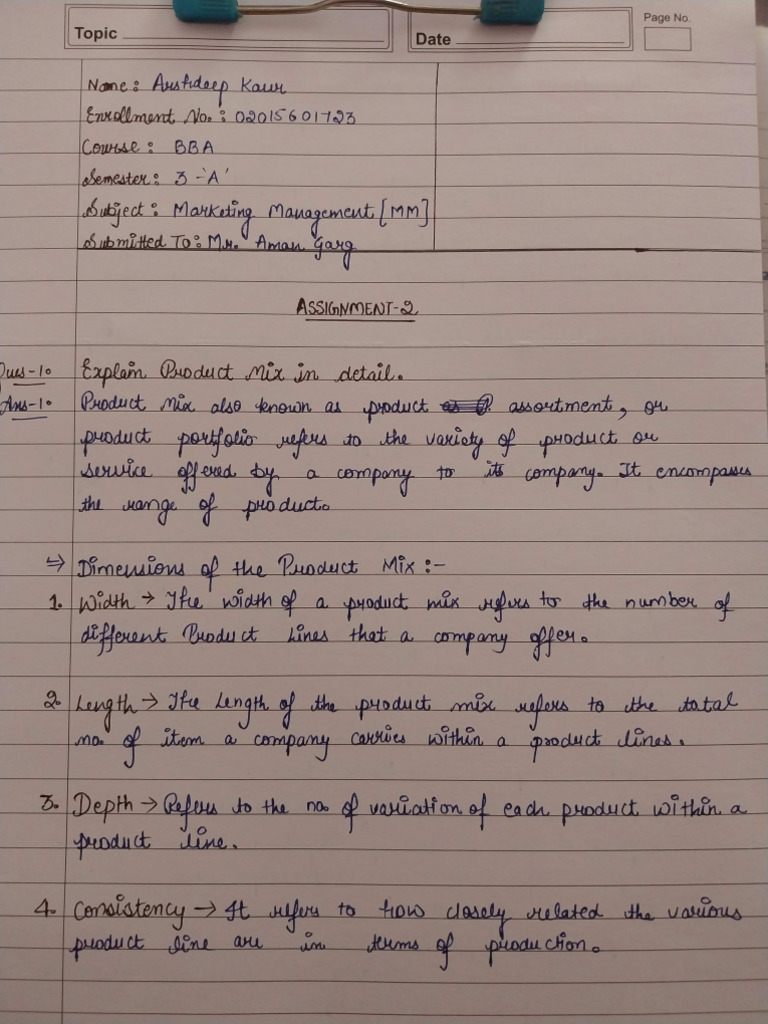 Page No.
Topic
Date
Name: Arshdeep Kaur
Enrollment No.: 02015601723
Course: BBA
Semester: 3-'A'
Subject: Marketing Management [MM]
Submitted To: Mr. Aman Garg
ASSIGNMENT-2
Ques-1. Explain Product Mix in detail.
Ans-1. Product Mix also known as product assortment, or
product portfolio refers to the variety of product or
service offered by a company to its company. It encompasses
the range of product.
⇒ Dimensions of the Product Mix :-
1. Width → The width of a product mix refers to the number of
different Product Lines that a company offer.
2. Length → The Length of the product mix refers to the total
no. of item a company carries within a product lines.
3. Depth → Refers to the no. of variation of each product within a
product line.
4. Consistency → It refers to how closely related the various
product line are in terms of production.